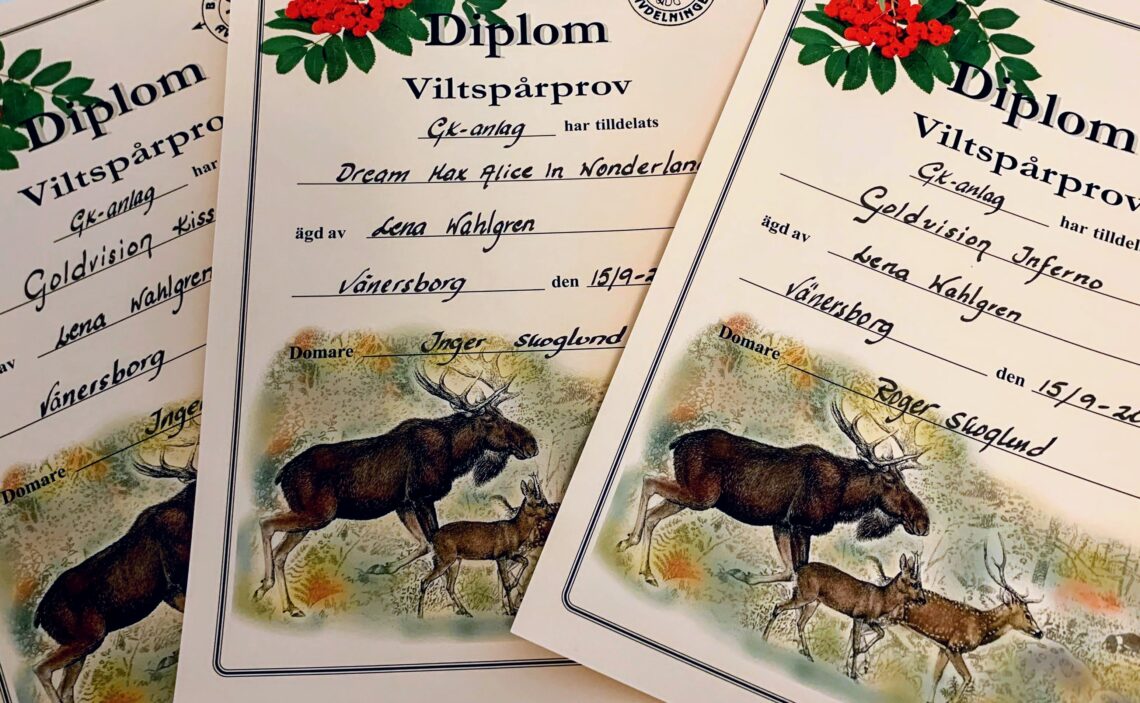 Diplom
Viltspårpro
GK-anlag har
Goldvision Kiss
av Lena Wahlgren
Vänersborg
Domare Inger
AVDELNINGEN
Diplom
Viltspårprov
GK-anlag har tilldelats
Dream Max Alice In Wonderlan
ägd av Lena Wahlgren
Vänersborg den 15/9-2
Domare Inger Skoglund
Diplom
Viltspårprov
GK-anlag har tilldel
Goldvision Inferno
ägd av Lena Wahlgren
Vänersborg den 15/9-20
Domare Roger Skoglund